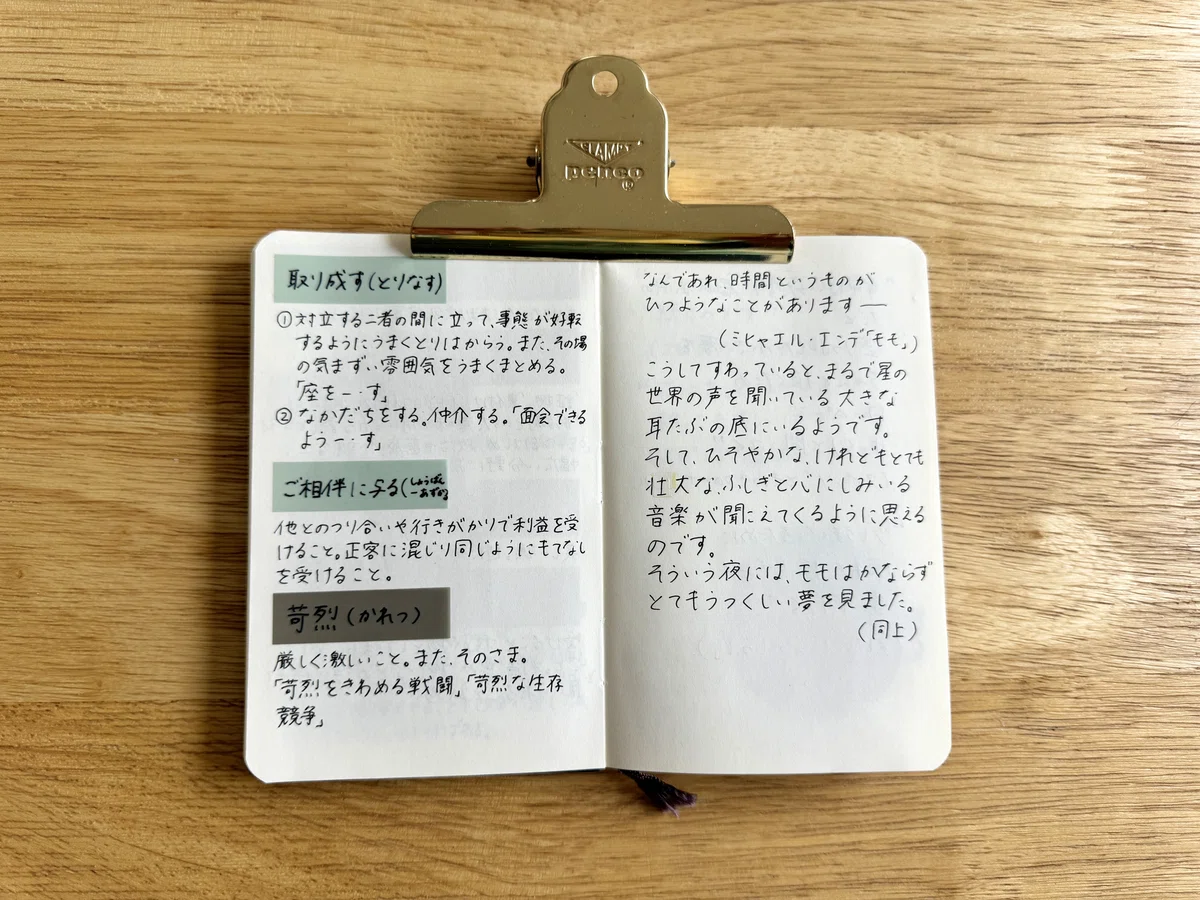 CLAMPY
penco®
取り成す(とりなす)
①対立する二者の間に立って、事態が好転
するようにうまくとりはからう。また、その場
の気まずい雰囲気をうまくまとめる。
「座を一・す」
②なかだちをする。仲介する。「面会できる
よう一・す」
ご相伴に与る(しょうばん
ーあずかる
他とのつり合いや行きがかりで利益を受
けること。正客に混じり同じようにもてなし
を受けること。
苛烈(かれつ)
厳しく激しいこと。また、そのさま。
「苛烈をきわめる戦闘」「苛烈な生存
競争」
なんであれ、時間というものが
ひつようなことがあります──
(ミヒャエル・エンデ「モモ」)
こうしてすわっていると、まるで星の
世界の声を聞いている大きな
耳たぶの底にいるようです。
そして、ひそやかな、けれどもとても
壮大な、ふしぎと心にしみいる
音楽が聞こえてくるように思える
のです。
そういう夜には、モモはかならず
とてもうつくしい夢を見ました。
(同上)